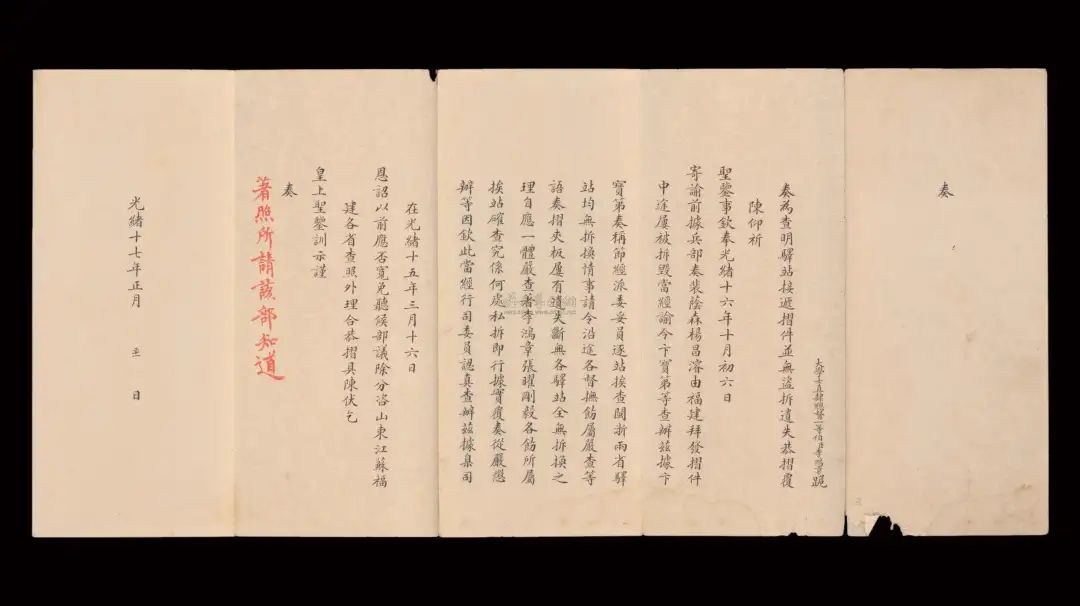 奏
大學士直隸總督一等伯臣李鴻章跪
奏為查明驛站接遞摺件並無盜拆遺失恭摺覆
陳仰祈
聖鑒事欽奉光緒十六年十月初六日
寄諭前據兵部奏裴蔭森楊昌濬由福建拜發摺件
中途屢被拆毀當經諭令卞寶第等查辦茲據卞
寶第奏稱節經派委妥員逐站挨查閩浙兩省驛
站均無拆換情事請令沿途各督撫飭屬嚴查等
語奏摺夾板屢有遺失斷無各驛站全無拆換之
理自應一體嚴查著李鴻章張曜剛毅各飭所屬
挨站確查究係何處私拆即行據實覆奏從嚴懲
辦等因欽此當經行司委員認真查辦茲據臬司
在光緒十五年三月十六日
恩詔以前應否寬免聽候部議除分咨山東江蘇福
建各省查照外理合恭摺具陳伏乞
皇上聖鑒訓示謹
奏
著照所請該部知道
光緒十七年正月 日